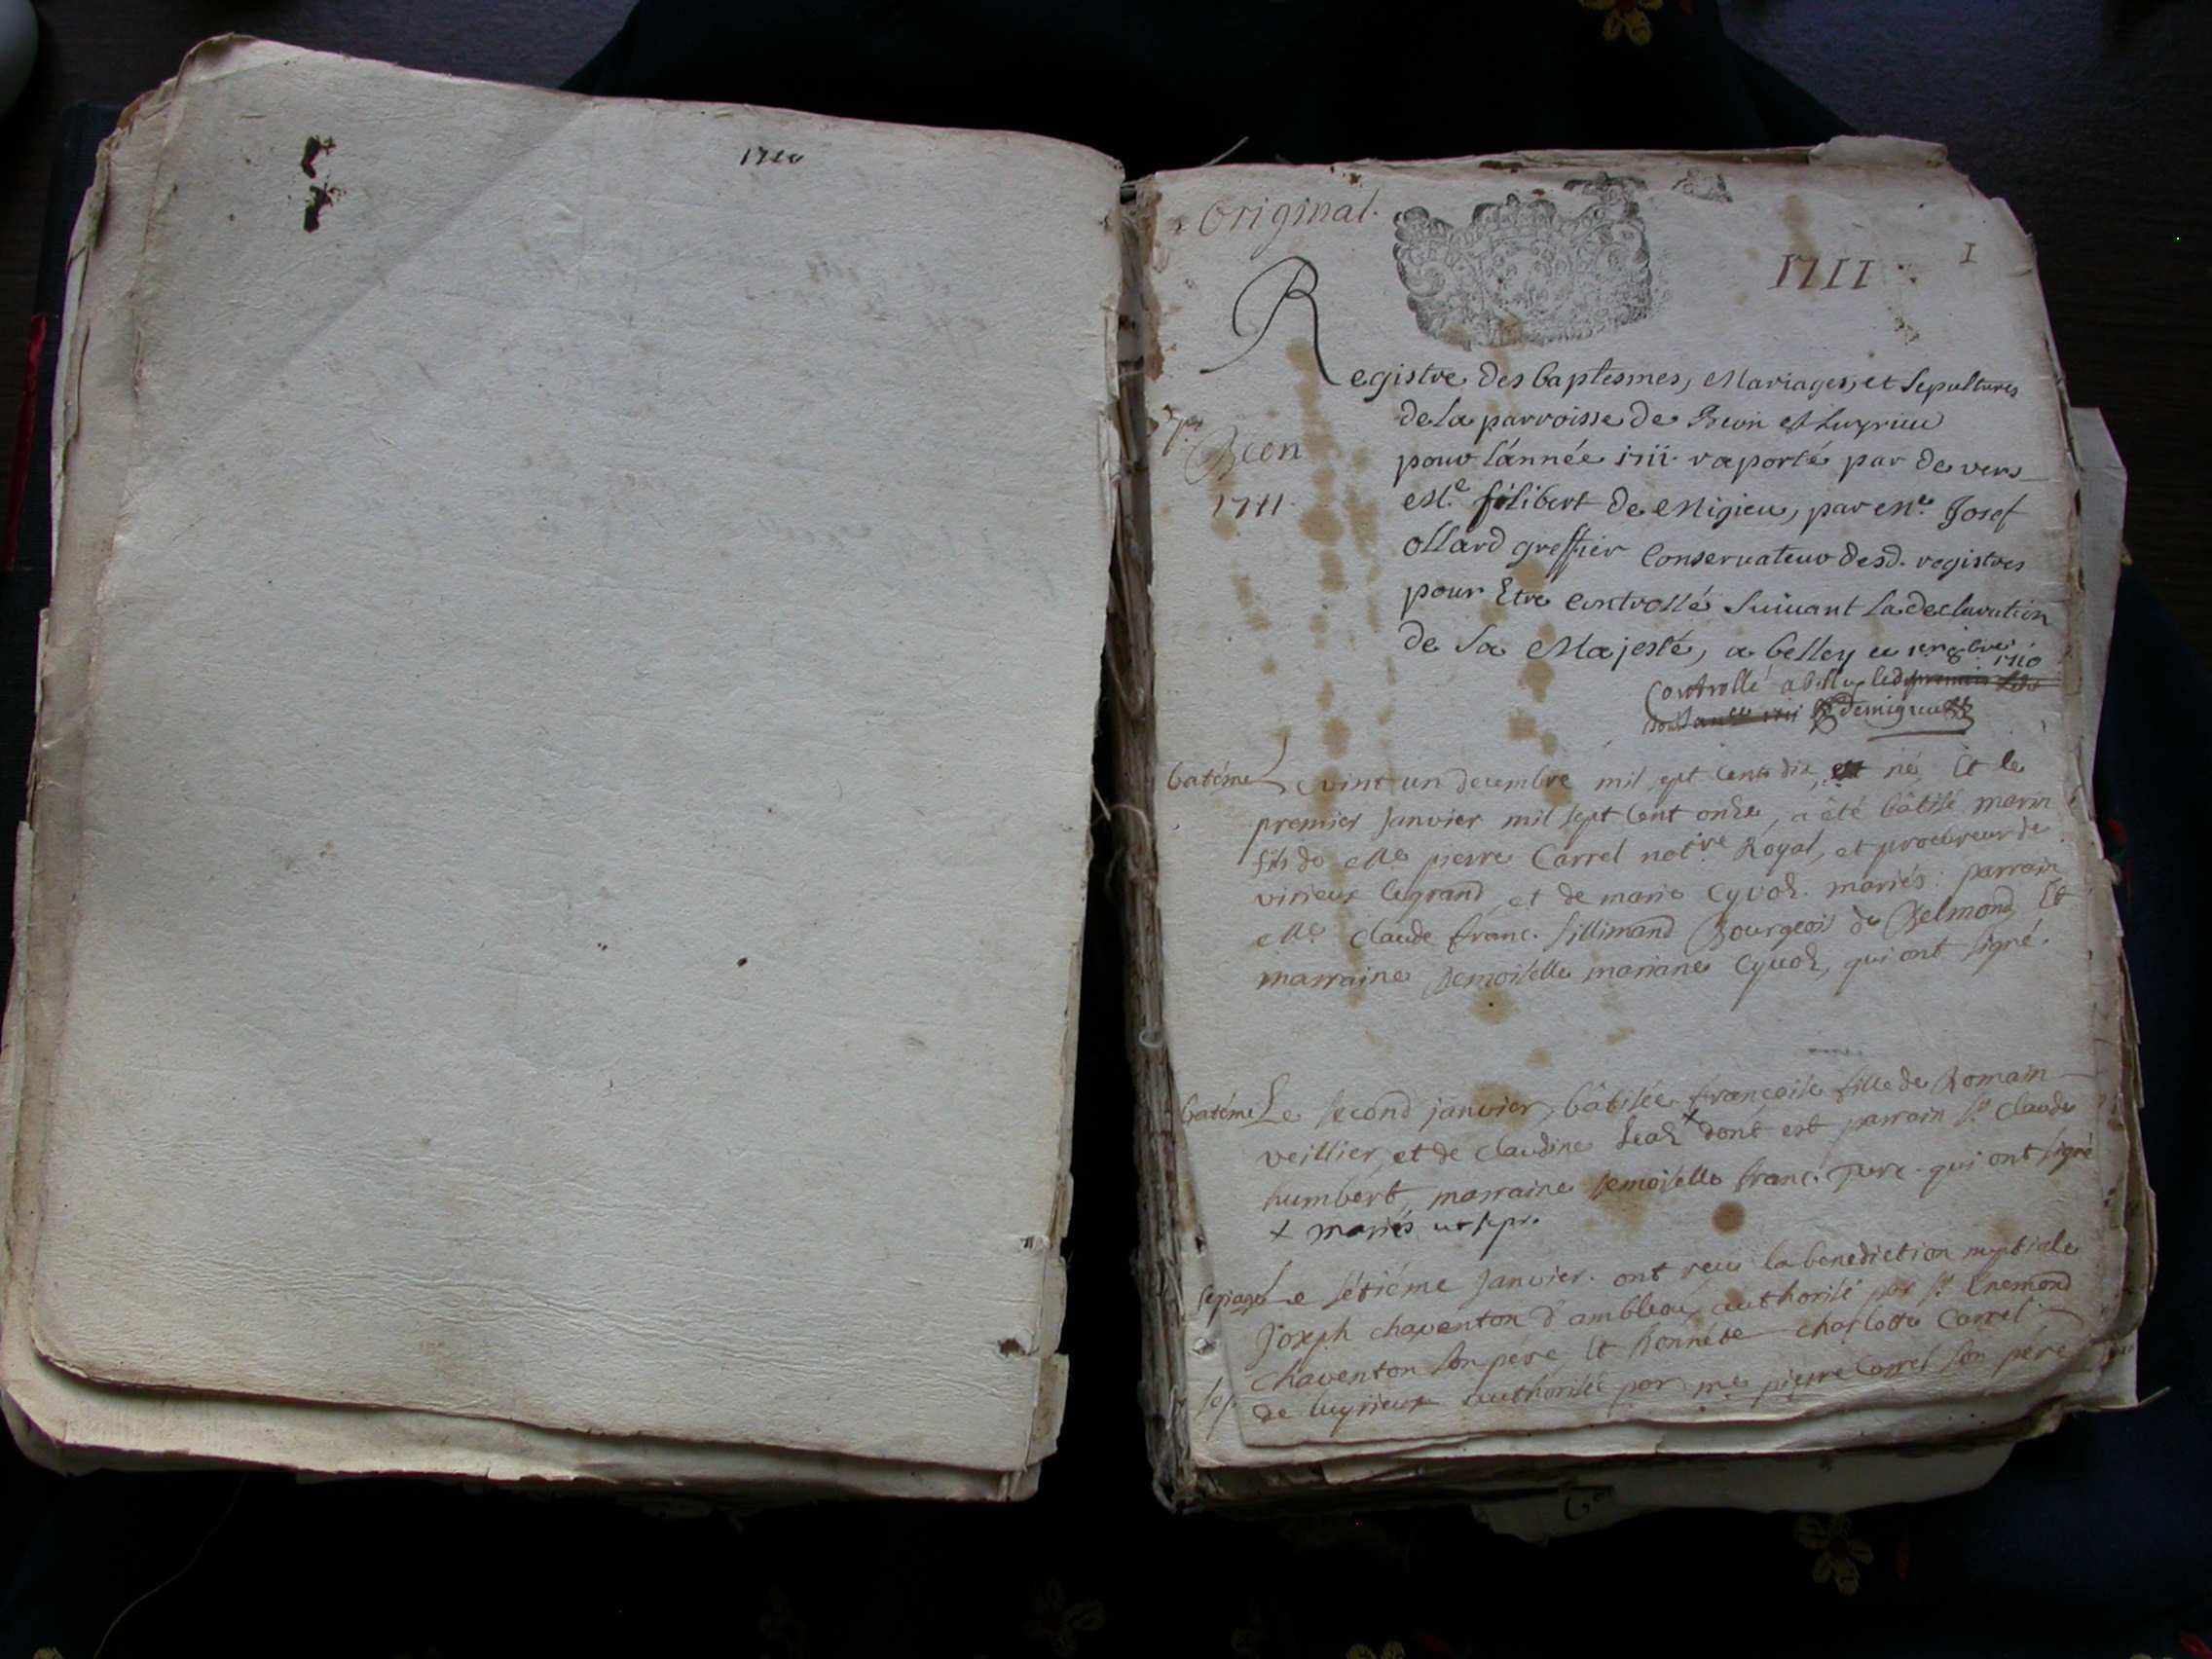 1710
Original.
1711
I
Registre des baptesmes, Mariages, et Sepultures
de la parroisse de Beon et Luyrieu
pour l'année 1711 raporté par devers
Me. filibert de Migieu, par Me. Josef
ollard greffier Conservateur desd. registres
pour Etre Controllé Suivant la declaration
de Sa Majesté, a belley ce 1710
Controllé a belley led
demigieu
Beon
1711.
batéme Le vint un decembre mil sept cents dix, est né, Et le
premier Janvier mil sept cent onze, a été bâtisé marin
fils de Me pierre Carrel notre. Royal, et procureur de
virieux legrand, et de marie Cyvoz. mariés: parrain
Me. Claude franc. sillimand Bourgeois de Belmond, Et
marraine Demoiselle mariane Cyvoz, qui ont signé.
batéme Le second janvier, bâtisée françoise fille de Romain
veillier, et de Claudine x dont est parrain Sr. Claude
humbert, marraine Demoiselle franc. qui ont signé
x mariés
Le sétiéme Janvier. ont receu la benediction nuptiale
Joseph chaventon d'ambleon, authorisé par Sr
chaventon son pére, Et honnéte charlotte Carrel
de luyrieux authorisée par me pierre Carrel son pére
sep.